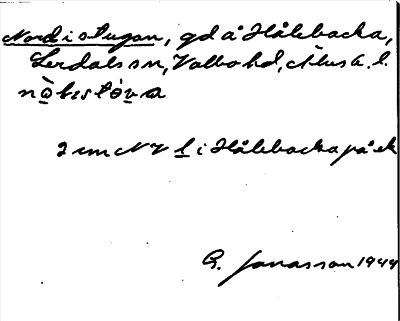 Nordistugan, gd å Hålebacka,
Lerdals sn, Valbo hd, Älvsb. l.
2 cm NV l i Hålebacka på ek
G. Jonasson 1944